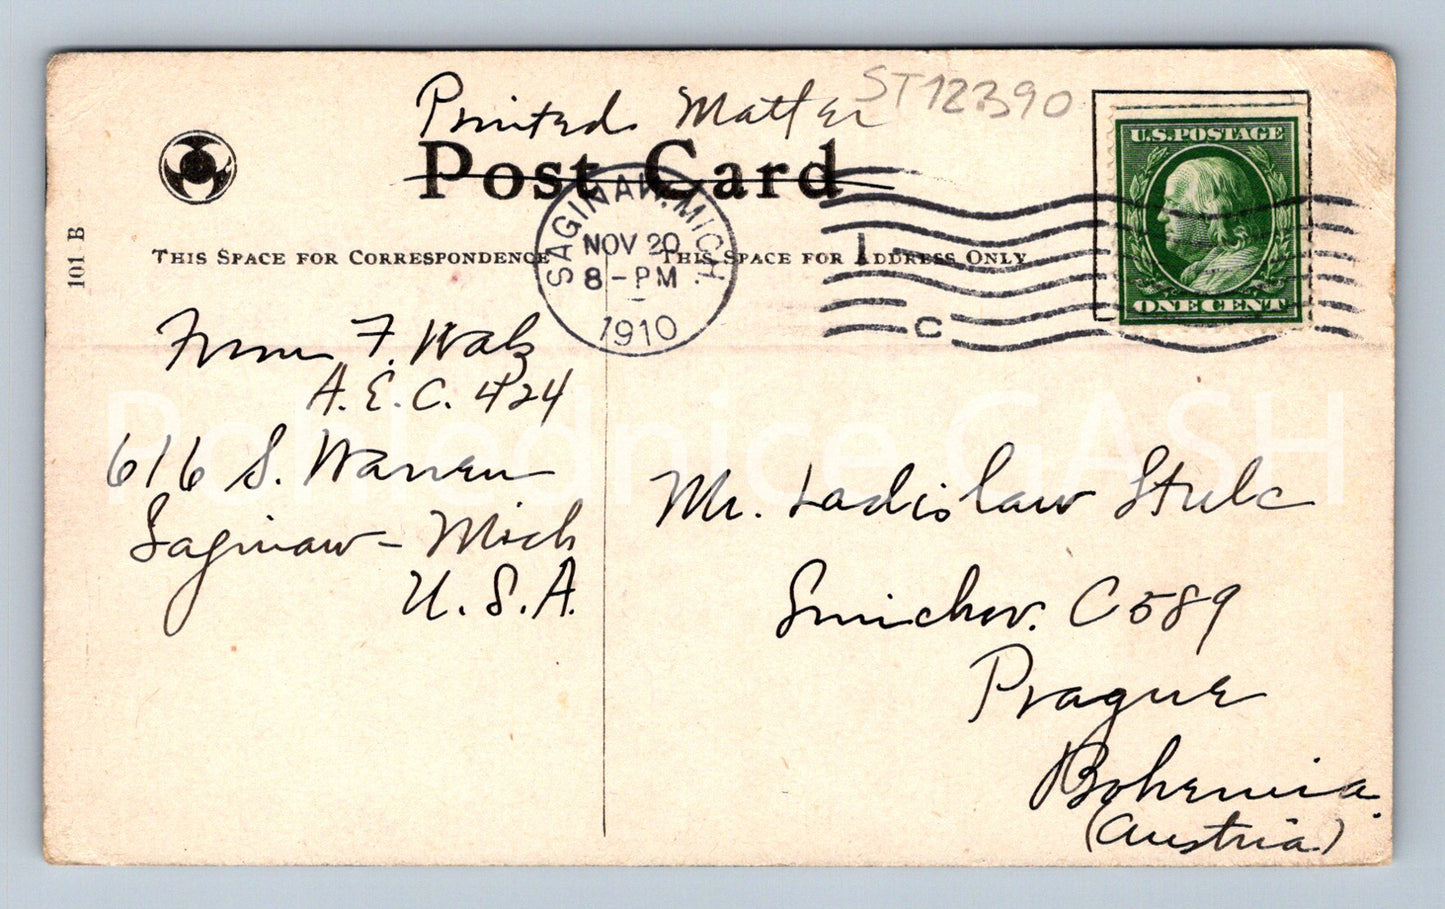 Printed Matter ST12390
Post Card
U.S. POSTAGE
ONE CENT
SAGINAW, MICH.
NOV 20
8-PM
1910
C
101 B
THIS SPACE FOR CORRESPONDENCE
THIS SPACE FOR ADDRESS ONLY
From F. Walz
A. E. C. 424
616 S. Warren
Saginaw - Mich
U. S. A.
Mr. Ladislaw Stulc
Smichov. C 589
Prague
Bohemia.
(Austria)
Pohlednice GASH